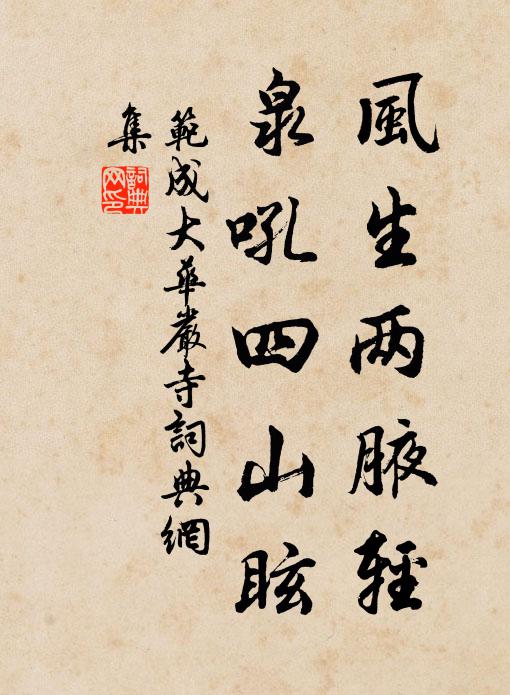 風生两腋輕
泉吼四山眩
範成大華嚴寺詞典網
集
詞典
网印